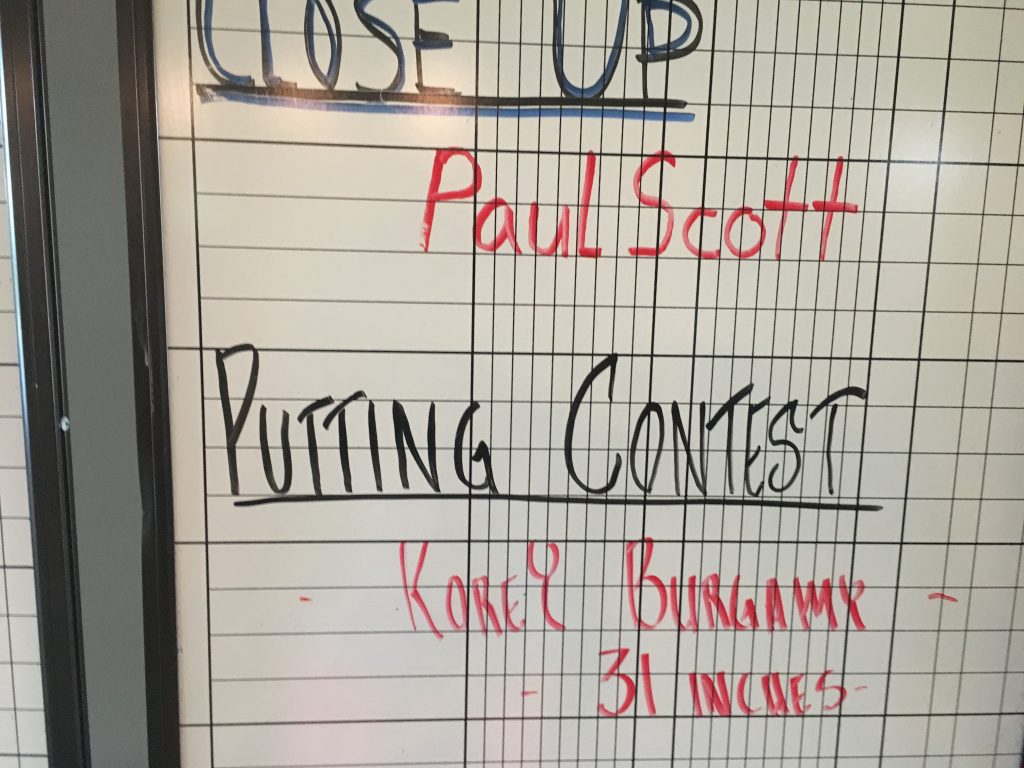 CLOSE UP
Paul Scott
PUTTING CONTEST
- KOREY BURGAMY -
- 31 INCHES -